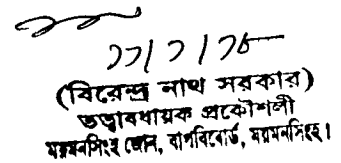 (বিরেন্দ্র নাথ সরকার)
তত্ত্বাবধায়ক প্রকৌশলী
ময়মনসিংহ জোন, বাপবিবোর্ড, ময়মনসিংহ।